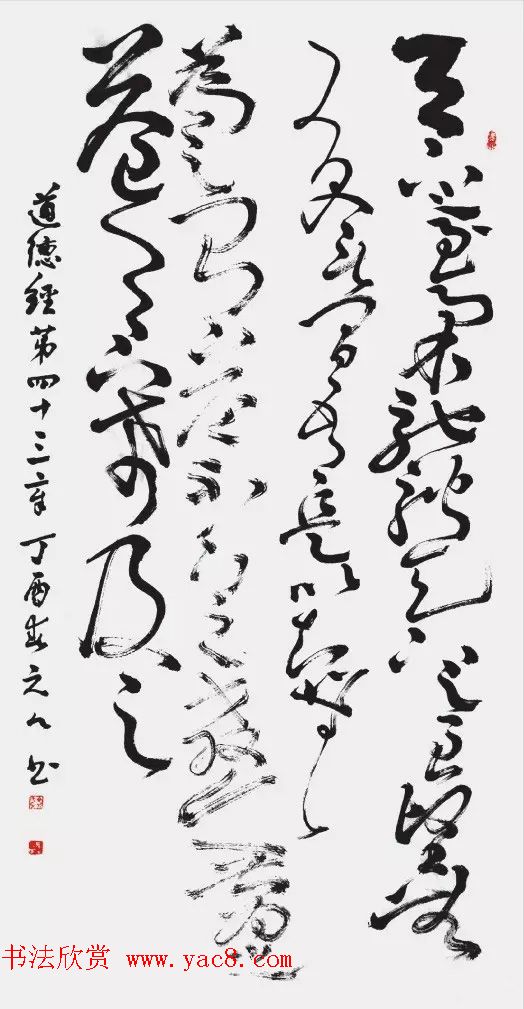 天下之至柔馳騁天下之至堅無
有入無間吾是以知無
為之有益不言之教無為之
益天下希及之
道德經第四十三章 丁酉春 书
书法欣赏 www.yac8.com